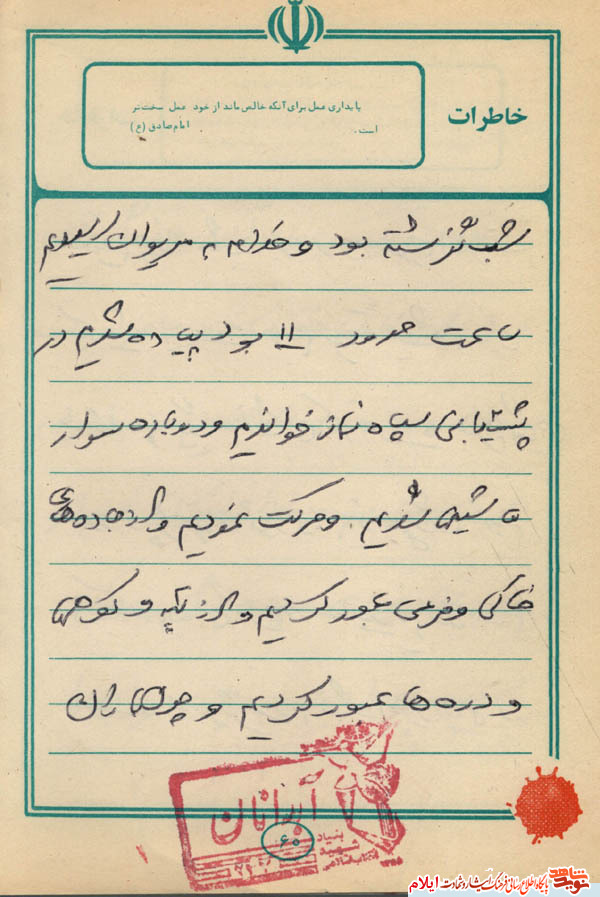 خاطرات
پایداری عمل برای آنکه خالص ماند از خود عمل سخت‌تر
است.
امام صادق (ع)
شب گذشته بود و به مریوان رسیدیم
ساعت حدود ۱۱ بود پیاده شدیم در
پشتیبانی سپاه نماز خواندیم و دوباره سوار
ماشینها شدیم. و حرکت نمودیم و از جاده‌های
خاکی و فرعی عبور کردیم و از تپه و کوهها
و دره‌ها عبور کردیم و چون
آبدانان
بنیاد
شهید
۶۰
نوید شاهد
پایگاه اطلاع رسانی فرهنگ ایثار و شهادت ایلام